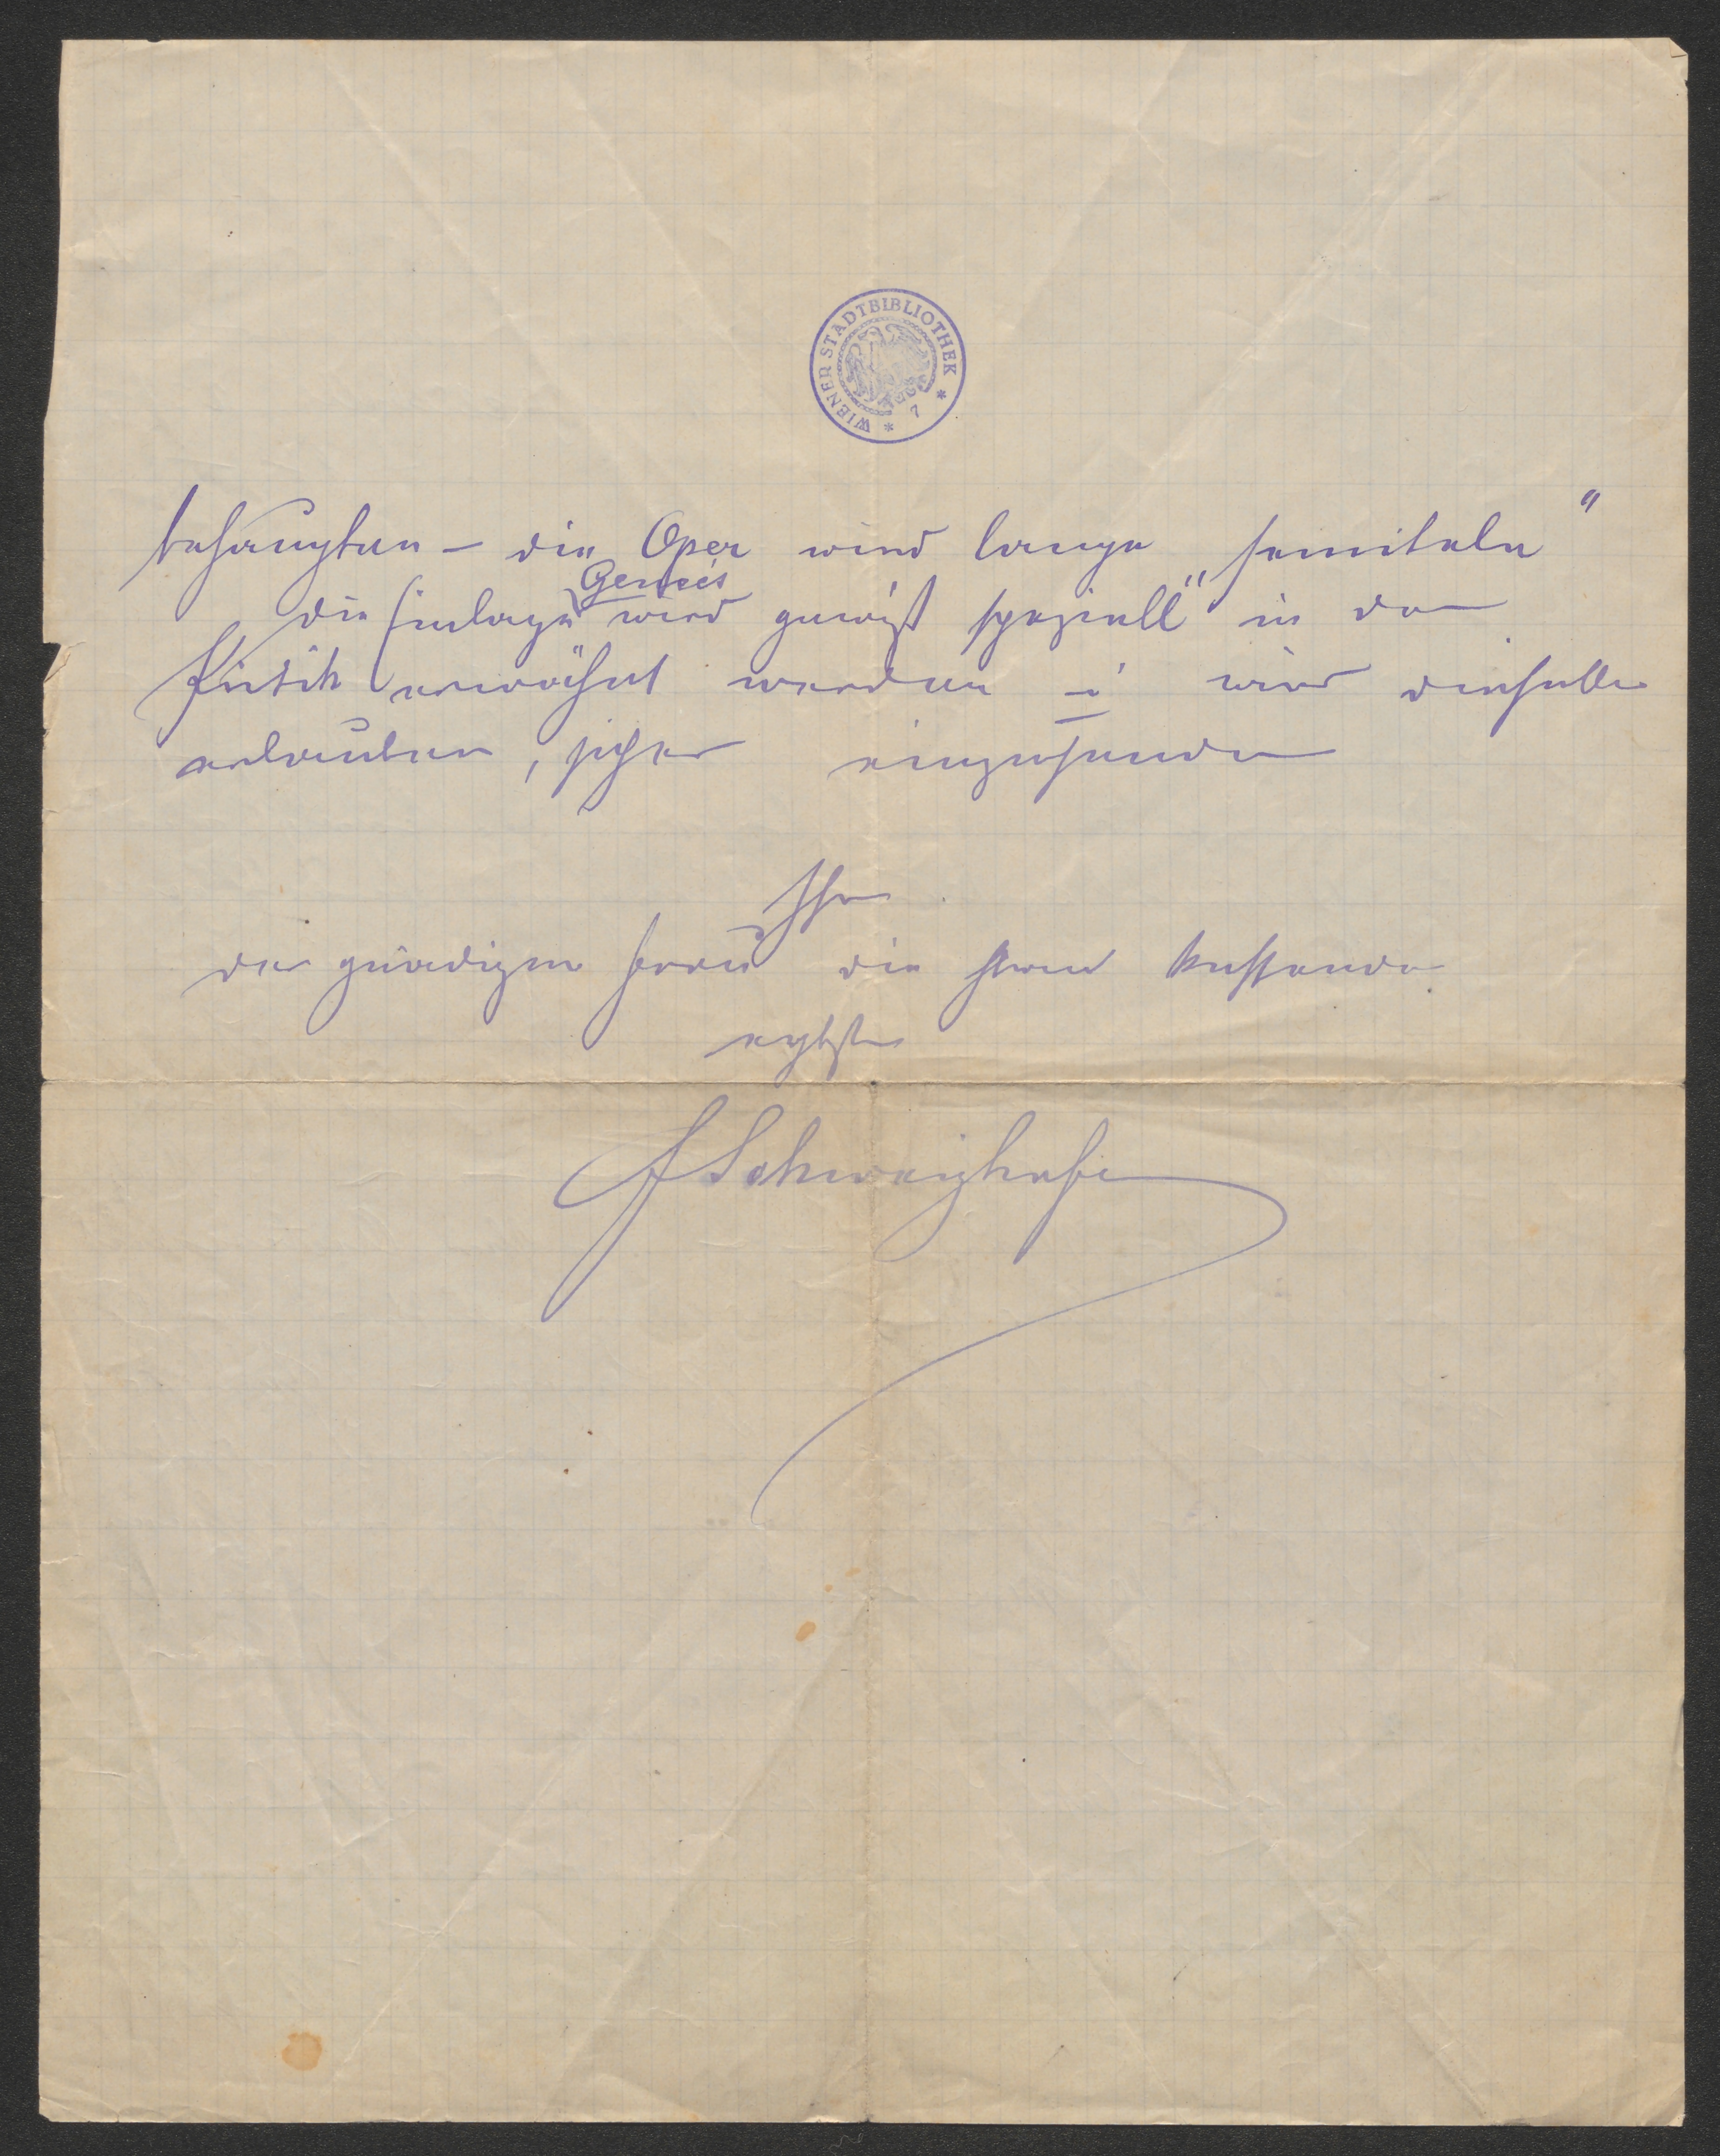 WIENER STADTBIBLIOTHEK * 7 *
behaupten – die Oper wird lange „
die Einlage Genée's wird gewiß speziell in der
Kritik erwähnt werden – i wird dieselbe
erlauben, Ihnen einzusenden
Ihr
der gnädigen Frau die Hand küssende
ergbst
FSchweighofer